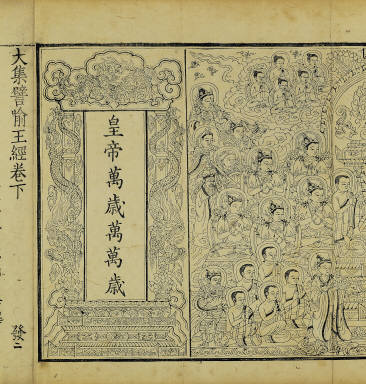 大集譬喻王經卷下
發二
皇帝萬歲萬萬歲